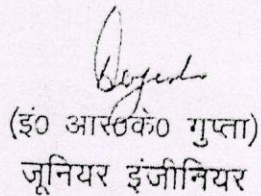 (इं० आर०के० गुप्ता)
जूनियर इंजीनियर